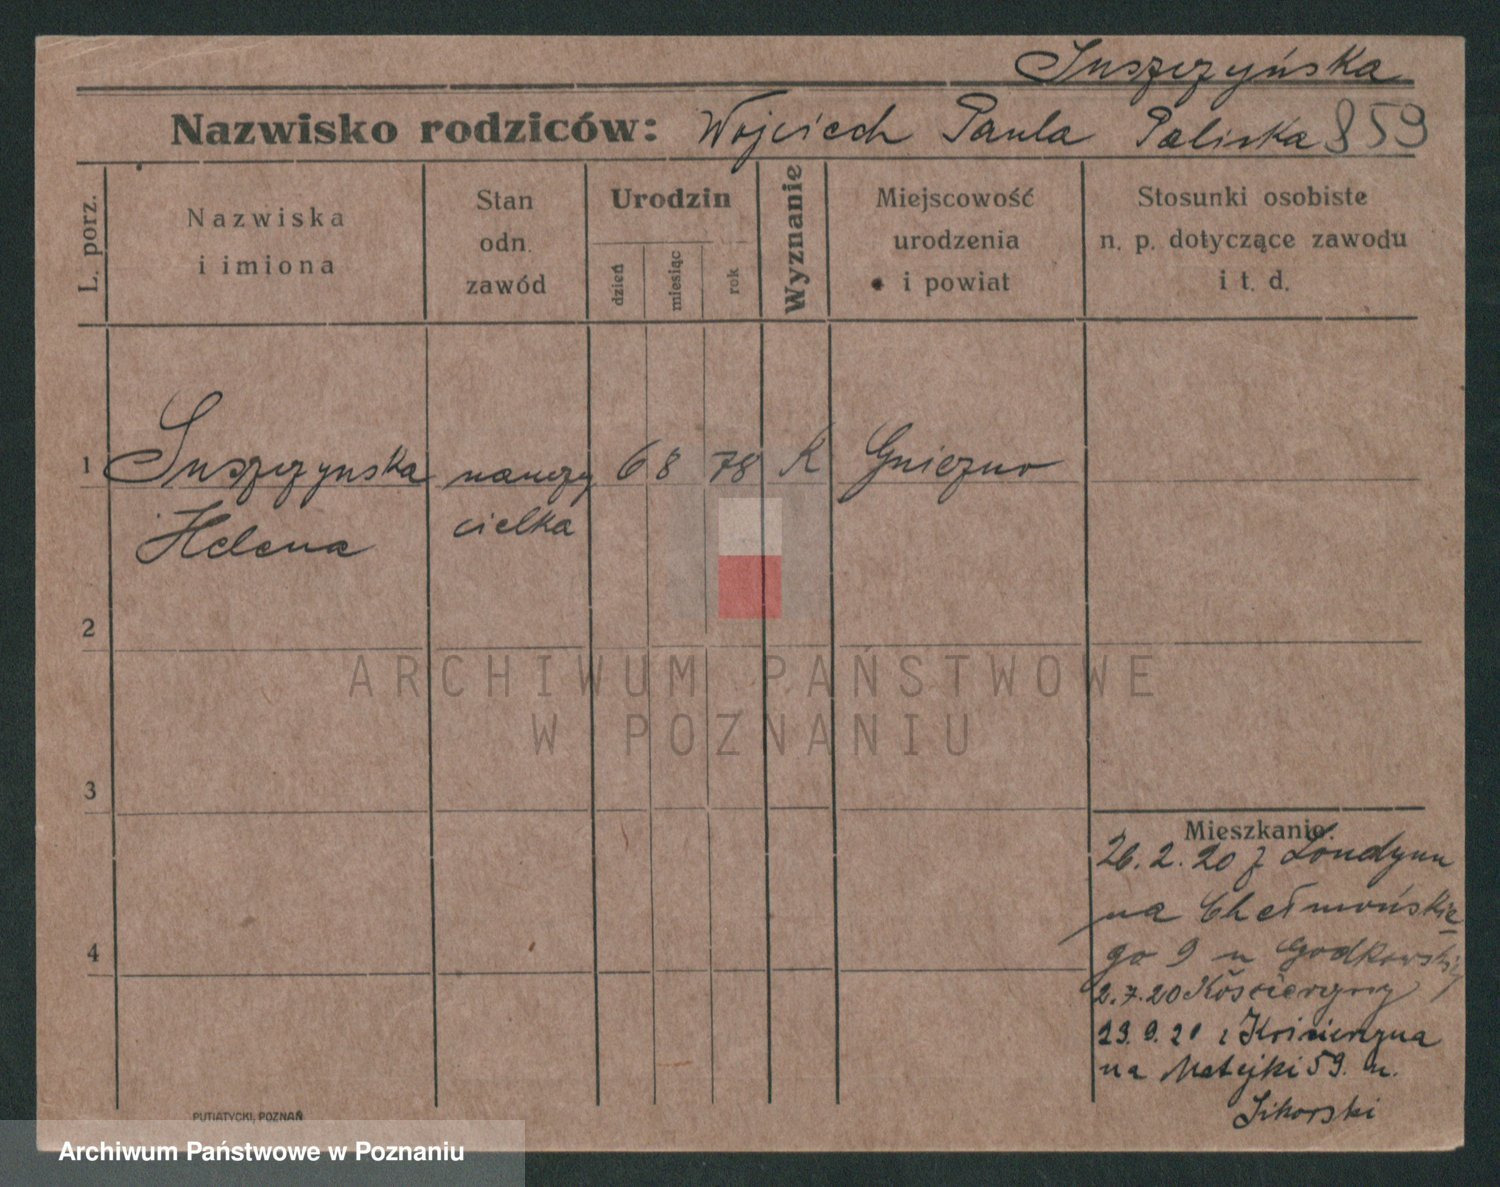 Suszczyńska
Nazwisko rodziców: Wojciech Paula Paliska 859
L. porz.
Nazwiska
i imiona
Stan
odn.
zawód
Urodzin
dzień
miesiąc
rok
Wyznanie
Miejscowość
urodzenia
i powiat
Stosunki osobiste
n. p. dotyczące zawodu
i t. d.
1 Suszczynska nauczy 6 8 78 K Gniezno
Helena cielka
2
3
4
Mieszkanie:
26.2.20 z Londynu
na Chełmońskie
go 9 u Godkowskiej
2.7.20 Kościerzyny
23.9.21 z Kościerzyna
na Matejki 59. u.
Sikorski
PUTIATYCKI, POZNAŃ
ARCHIWUM PAŃSTWOWE
W POZNANIU
Archiwum Państwowe w Poznaniu